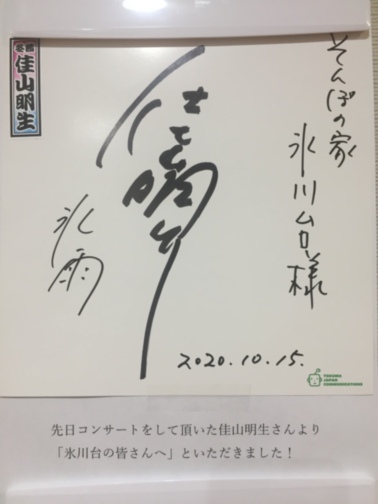 そんぽの家
氷川台様
佳山明生
氷雨
2020.10.15.
TOKUMA
JAPAN
COMMUNICATIONS
先日コンサートをして頂いた佳山明生さんより
「氷川台の皆さんへ」といただきました!